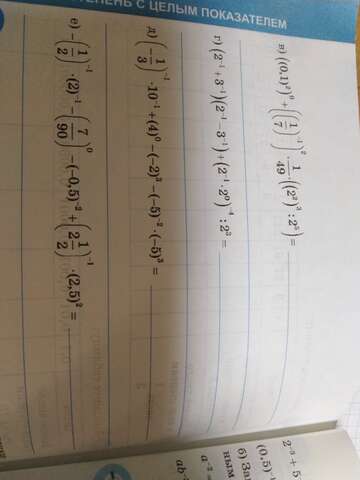 СТЕПЕНЬ С ЦЕЛЫМ ПОКАЗАТЕЛЕМ
в) ((0,1)²)⁰ + ((1/7)⁻¹)² · 1/49 · ((2²)³ : 2⁵) =
г) (2⁻¹ + 3⁻¹)(2⁻¹ − 3⁻¹) + (2⁻¹ · 2⁰)⁻⁴ : 2³ =
д) (−1/3)⁻¹ · 10⁻¹ + (4)⁰ − (−2)³ − (−5)⁻² · (−5)³ =
е) −(1/2)⁻¹ · (2)⁻¹ − (7/90)⁰ − (−0,5)⁻² + (2 1/2)⁻¹ · (2,5)² =
2⁻³ + 5
(0,5)
б) За
ным
a⁻²